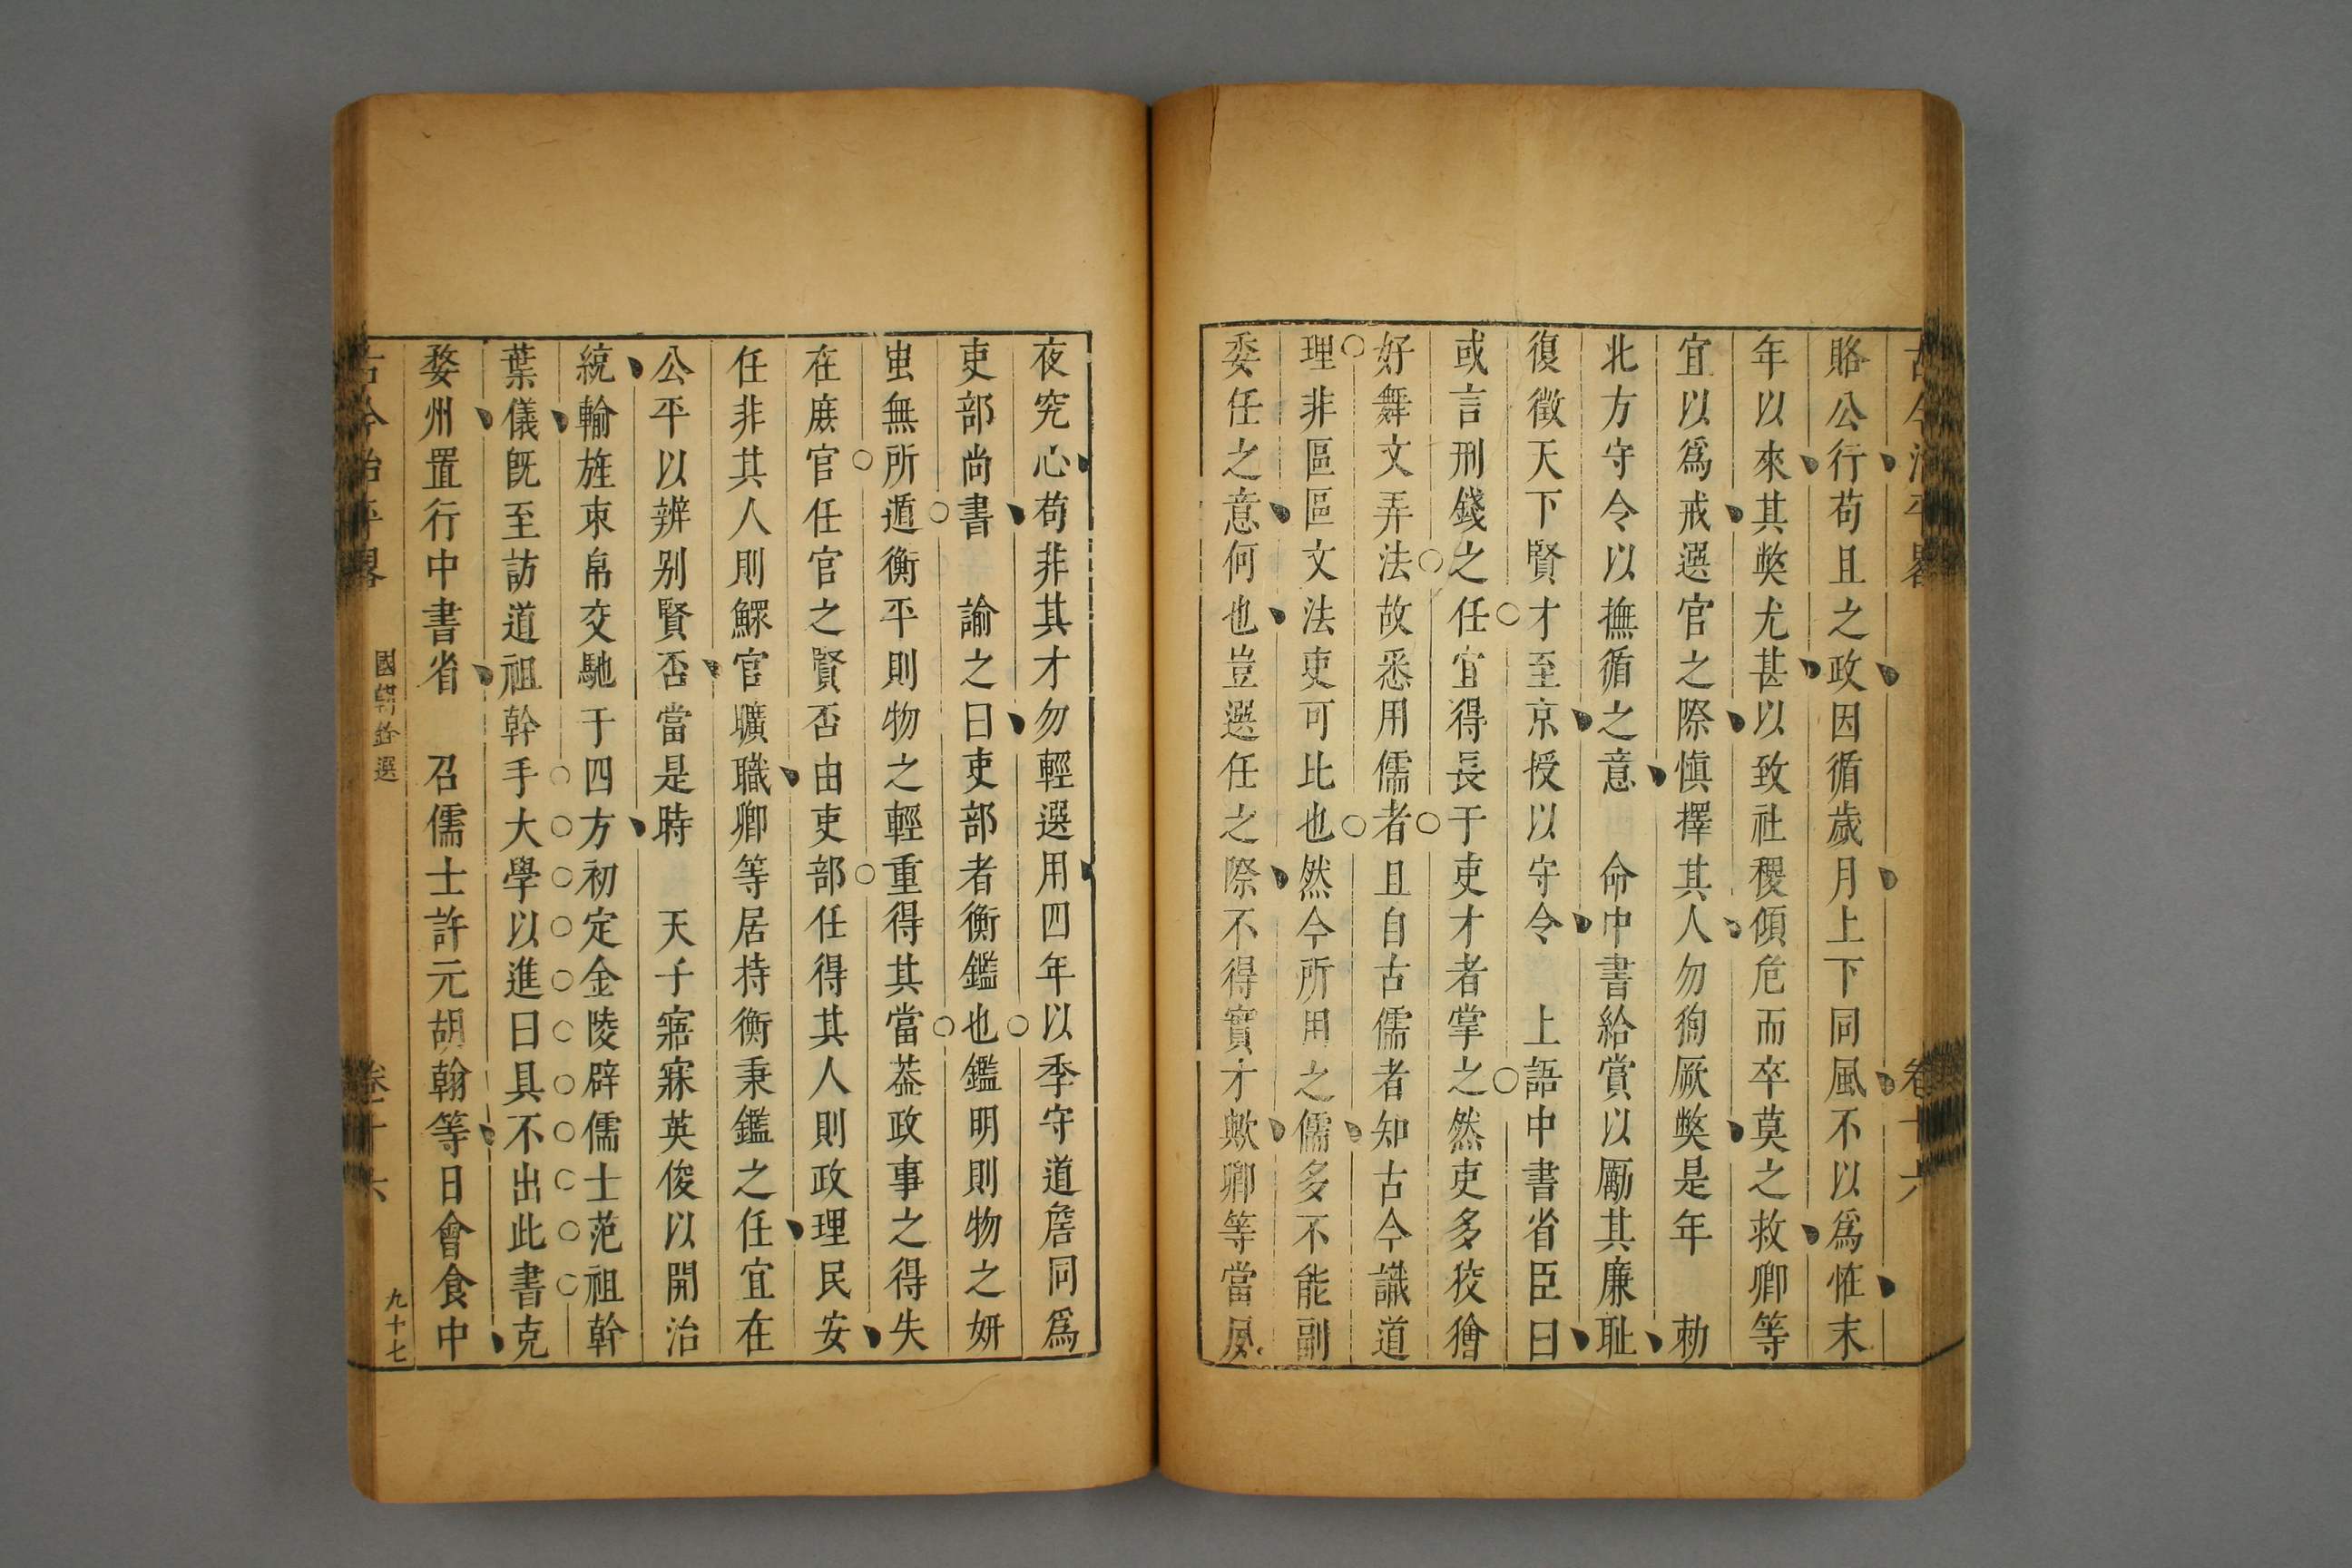 古今治平畧
卷十六
賂公行苟且之政因循歲月上下同風不以爲恠末
年以來其獘尤甚以致社稷傾危而卒莫之救卿等
宜以爲戒選官之際愼擇其人勿狥厥獘是年　勑
北方守令以撫循之意　命中書給賞以厲其廉耻
復徵天下賢才至京授以守令　上語中書省臣曰
或言刑錢之任宜得長于吏才者掌之然吏多狡獪
好舞文弄法故悉用儒者且自古儒者知古今識道
理非區區文法吏可比也然今所用之儒多不能副
委任之意何也豈選任之際不得實才歟卿等當夙
夜究心苟非其才勿輕選用四年以季守道詹同爲
吏部尚書　諭之曰吏部者衡鑑也鑑明則物之姸
蚩無所遁衡平則物之輕重得其當葢政事之得失
在庻官任官之賢否由吏部任得其人則政理民安
任非其人則鰥官曠職卿等居持衡秉鑑之任宜在
公平以辨别賢否當是時　天子寤寐英俊以開治
統輸旌束帛交馳于四方初定金陵辟儒士范祖幹
葉儀旣至訪道祖幹手大學以進曰具不出此書克
婺州置行中書省　召儒士許元胡翰等日會食中
古今治平畧
國朝銓選
卷十六
九十七